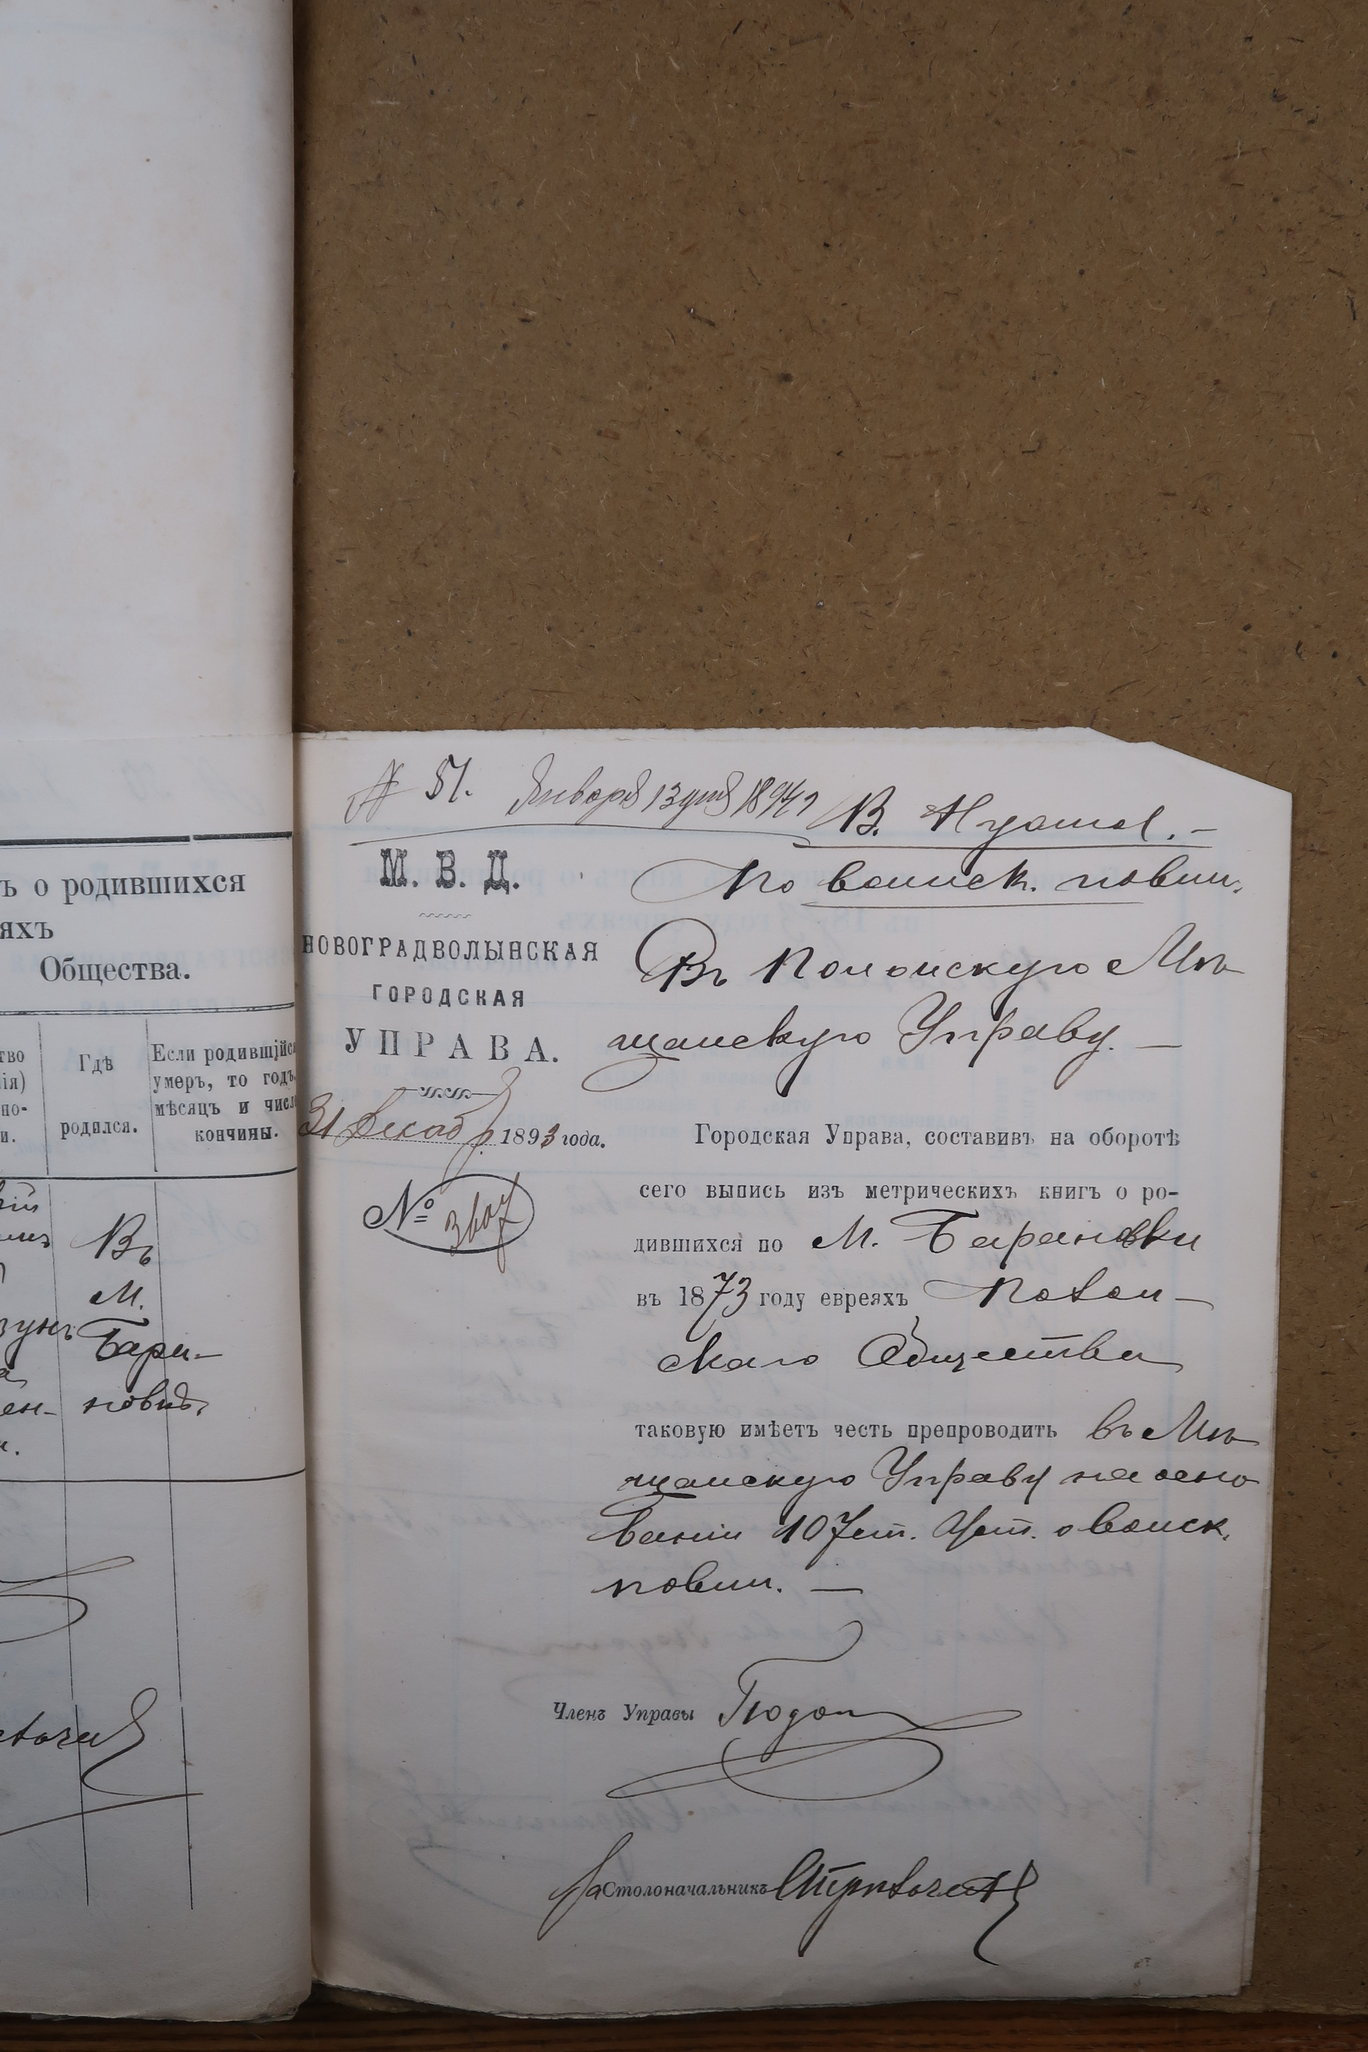 ъ о родившихся
яхъ
Общества.
тво
ія)
по-
и.
Гдѣ
родился.
Если родившійся
умеръ, то годъ,
мѣсяцъ и число
кончины.
Въ
М.
Бара-
новкѣ.
№ 51. Января 13 дня 1894
В. Нужное.
По воинск. повин.
М. В. Д.
НОВОГРАДВОЛЫНСКАЯ
ГОРОДСКАЯ
УПРАВА.
31 Декабр. 1893 года.
№ 3607
Въ Полонскую Мѣ-
щанскую Управу.—
Городская Управа, составивъ на оборотѣ
сего выпись изъ метрическихъ книгъ о ро-
дившихся по М. Барановки
въ 1873 году евреяхъ Полон-
скаго Общества
таковую имѣетъ честь препроводить въ Мѣ-
щанскую Управу на осно
ваніи 107 ст. Уст. о воинск.
повин. —
Членъ Управы
За Столоначальникъ